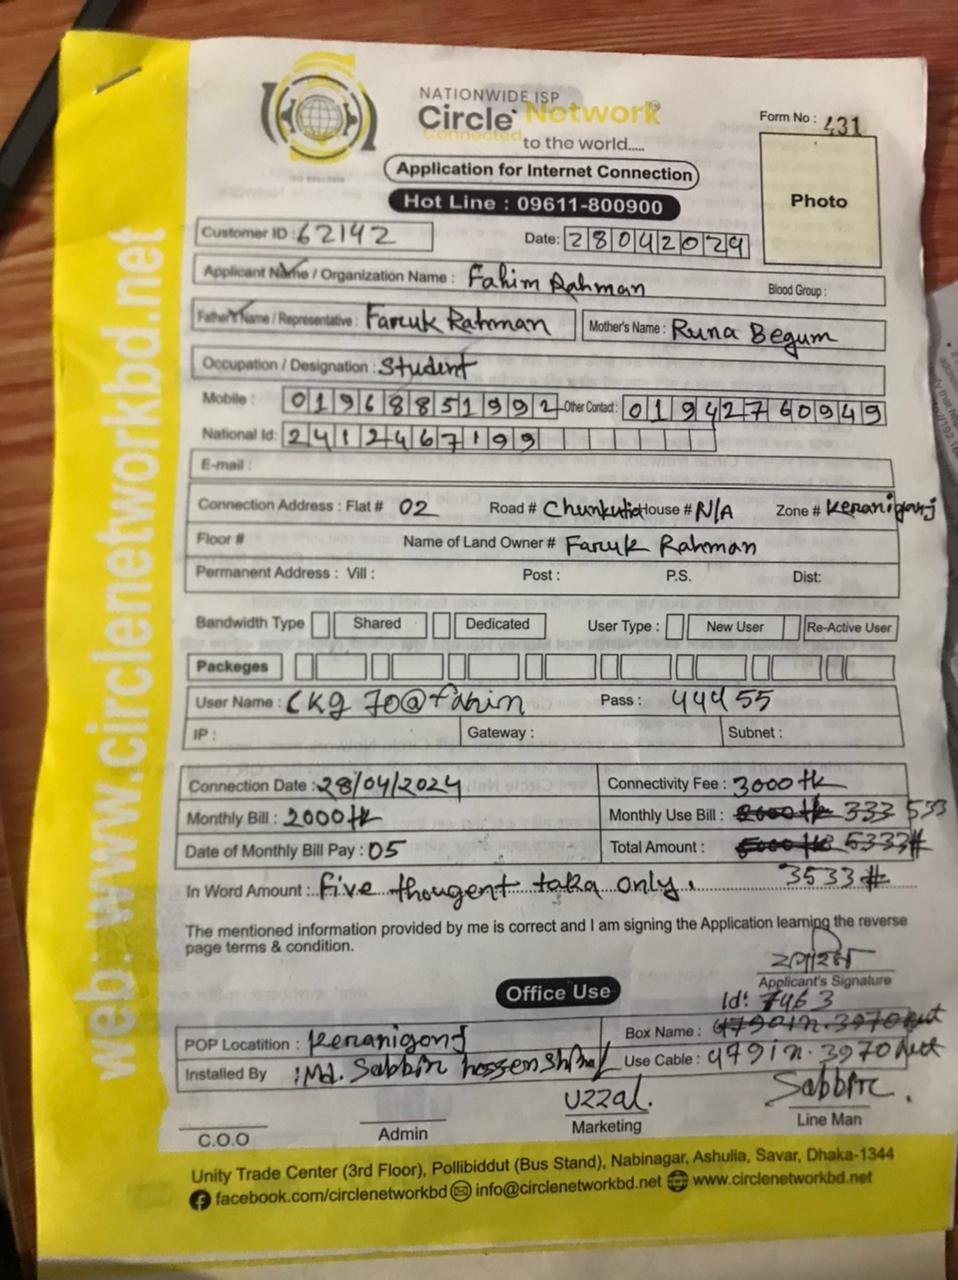 NATIONWIDE ISP
Circle Network
Connected
to the world.....
Form No : 431
Application for Internet Connection
Photo
Hot Line : 09611-800900
Customer ID : 62142
Date: 28042024
Applicant Name / Organization Name : Fahim Rahman
Blood Group :
Father's Name / Representative : Faruk Rahman
Mother's Name : Runa Begum
Occupation / Designation : Student
Mobile : 01968851992 Other Contact : 01942760949
National Id: 2412467199
E-mail :
Connection Address : Flat # 02 Road # Chunkutia House # N/A Zone # Keraniganj
Floor # Name of Land Owner # Faruk Rahman
Permanent Address : Vill : Post : P.S. Dist:
Bandwidth Type Shared Dedicated User Type : New User Re-Active User
Packeges
User Name : CKg 70@fahim Pass : 44455
IP : Gateway : Subnet :
Connection Date : 28/04/2024 Connectivity Fee : 3000 tk
Monthly Bill : 2000 tk Monthly Use Bill : 333 533
Date of Monthly Bill Pay : 05 Total Amount : 5333#
In Word Amount : five thougent taka only. 3533#
The mentioned information provided by me is correct and I am signing the Application learning the reverse
page terms & condition.
Applicant's Signature
Office Use
Id: 7463
POP Locatition : Keranigonj Box Name :
Installed By : Md. Sabbir hossen Use Cable :
C.O.O
Admin
Uzzal.
Marketing
Sabbir.
Line Man
Unity Trade Center (3rd Floor), Pollibiddut (Bus Stand), Nabinagar, Ashulia, Savar, Dhaka-1344
facebook.com/circlenetworkbd info@circlenetworkbd.net www.circlenetworkbd.net
web: www.circlenetworkbd.net